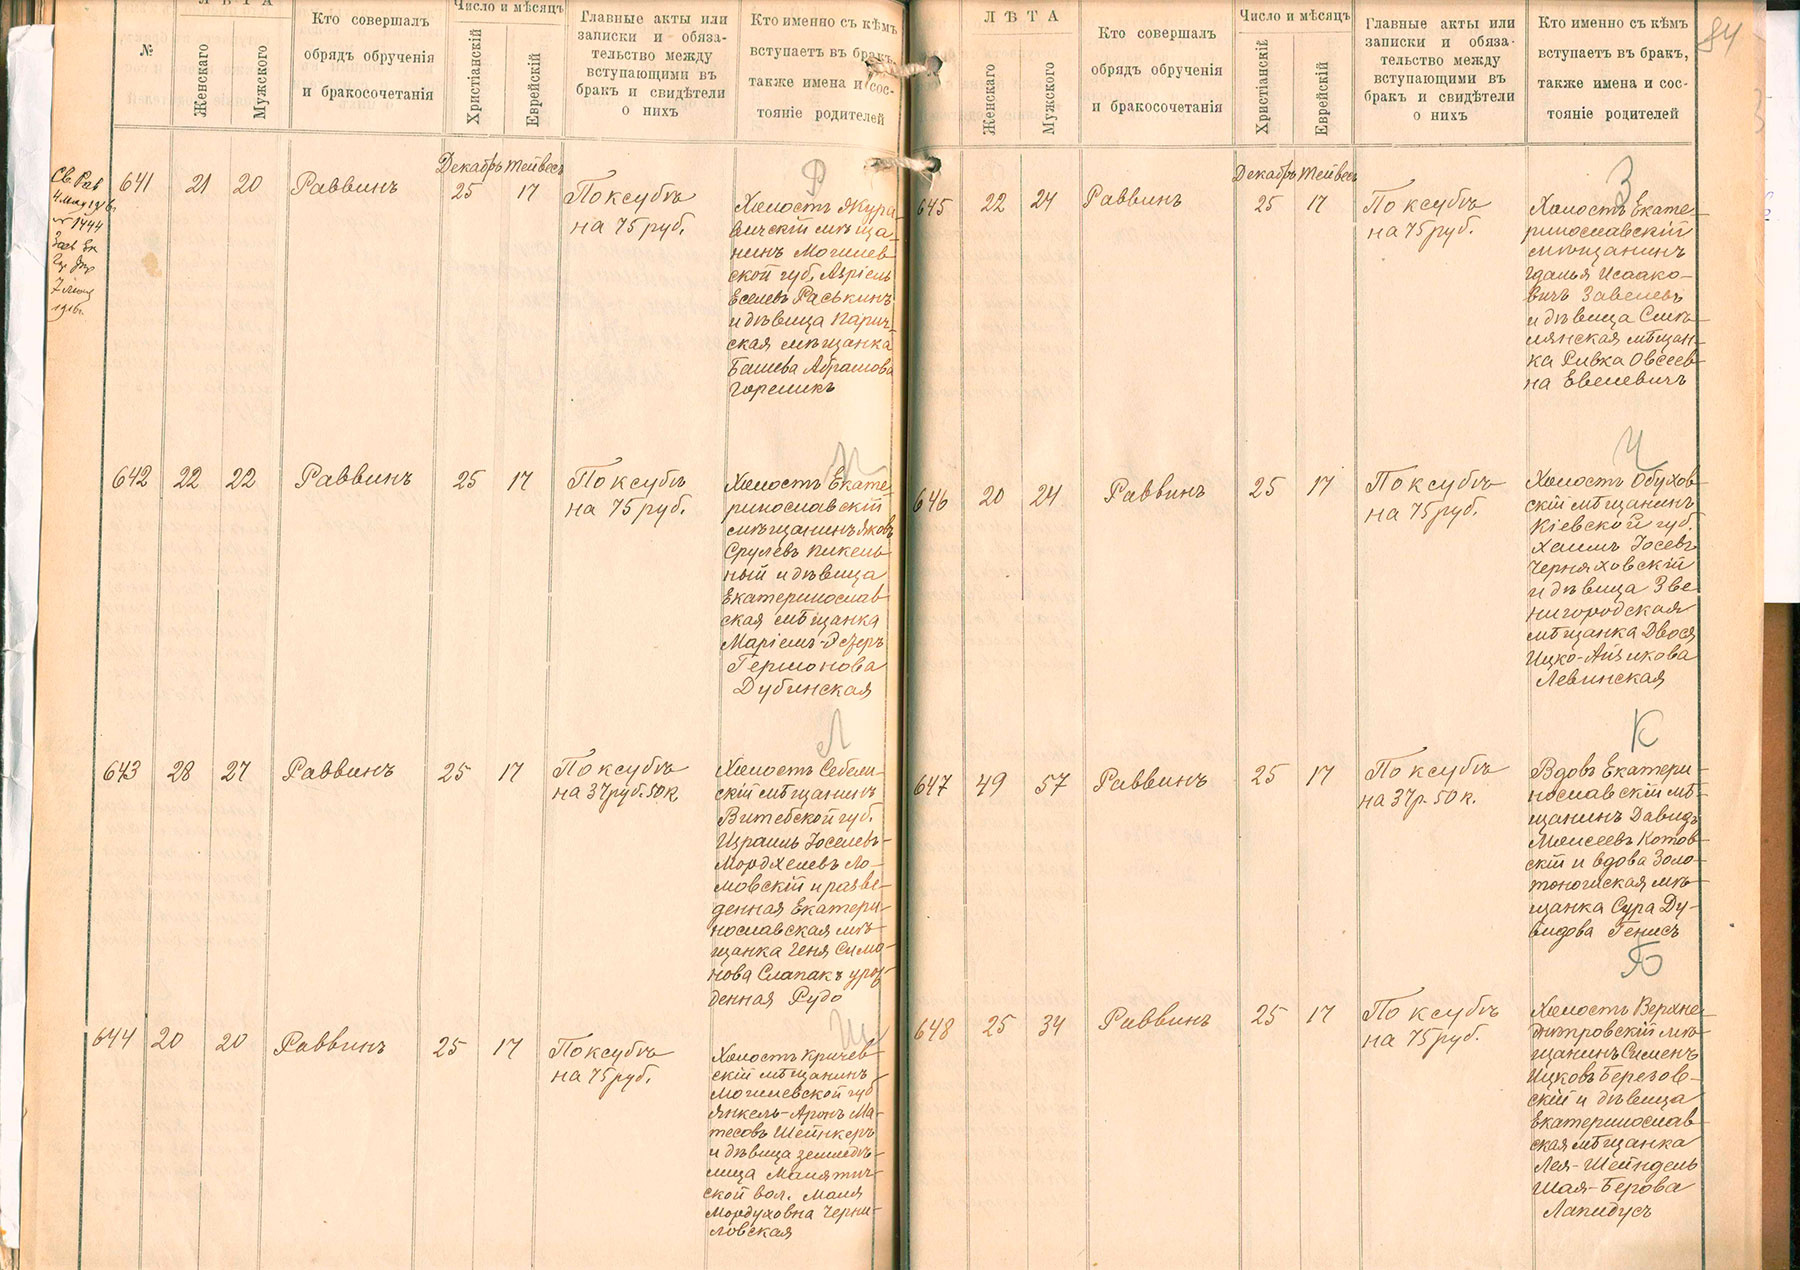 ЛѢТА
№
Женскаго
Мужского
Кто совершалъ
обрядъ обрученія
и бракосочетанія
Число и мѣсяцъ
Христіанскій
Еврейскій
Главные акты или
записки и обяза-
тельство между
вступающими въ
бракъ и свидѣтели
о нихъ
Кто именно съ кѣмъ
вступаетъ въ бракъ,
также имена и сос-
тояніе родителей
641
21
20
Раввинъ
Декабрь
25
Тейвесъ
17
По ксубѣ
на 75 руб.
Р
Холостъ Якура-
вичскій мѣща-
нинъ Могилев
ской губ. Азріель
Еселевъ Раськинъ
и дѣвица Парич-
ская мѣщанка
Башева Абрамова
Гореликъ
642
22
22
Раввинъ
25
17
По ксубѣ
на 75 руб.
Холостъ Екате-
ринославскій
мѣщанинъ Яковъ
Срулевъ Пикель
ный и дѣвица
Екатеринослав
ская мѣщанка
Маріемъ-Эсѳеръ
Гермонова
Дубинская
643
28
27
Раввинъ
25
17
По ксубѣ
на 37 руб. 50 к.
Л
Холостъ Себежи-
скій мѣщанинъ
Витебской губ.
Израиль Іоселевъ-
Мордхелевъ Ло-
мовскій и разве-
денная Екатери-
нославская мѣ-
щанка Геня Симо-
нова Слапакъ урож
денная Рудо
644
20
20
Раввинъ
25
17
По ксубѣ
на 75 руб.
Ш
Холостъ Кричев
скій мѣщанинъ
Могилевской губ
Янкель-Аронъ Ма-
тесовъ Шейнкеръ
и дѣвица земледѣ-
лица
ской вол. Маля
Мордуховна Черни-
ловская
ЛѢТА
Женскаго
Мужского
Кто совершалъ
обрядъ обрученія
и бракосочетанія
Число и мѣсяцъ
Христіанскій
Еврейскій
Главные акты или
записки и обяза-
тельство между
вступающими въ
бракъ и свидѣтели
о нихъ
Кто именно съ кѣмъ
вступаетъ въ бракъ,
также имена и сос-
тояніе родителей
84
645
22
24
Раввинъ
Декабрь
25
Тейвесъ
17
По ксубѣ
на 75 руб.
З
Холостъ Екате-
ринославскій
мѣщанинъ
Гдалья Исаако-
вичъ Завелевъ
и дѣвица Смѣ-
лянская мѣщан-
ка Ривка Овсеев-
на Евелевичъ
646
20
24
Раввинъ
25
17
По ксубѣ
на 75 руб.
Ч
Холостъ Обухов-
скій мѣщанинъ
Кіевской губ.
Хаимъ Іосевъ
Черняховскій
и дѣвица Зве
нигородская
мѣщанка Двося
Ицко-Айзикова
Левинская
647
49
57
Раввинъ
25
17
По ксубѣ
на 37 р. 50 к.
К
Вдовъ Екатери-
нославскій мѣ-
щанинъ Давидъ
Моисеевъ Котов-
скій и вдова Золо-
тоношская мѣ-
щанка Сура Ду-
видова Генисъ
648
25
34
Раввинъ
25
17
По ксубѣ
на 75 руб.
Б
Холостъ Верхне-
днѣпровскій мѣ-
щанинъ Сименъ
Ицковъ Березов-
скій и дѣвица
Екатеринослав
ская мѣщанка
Лея-Шейндель
Шая-Берова
Лапидусъ